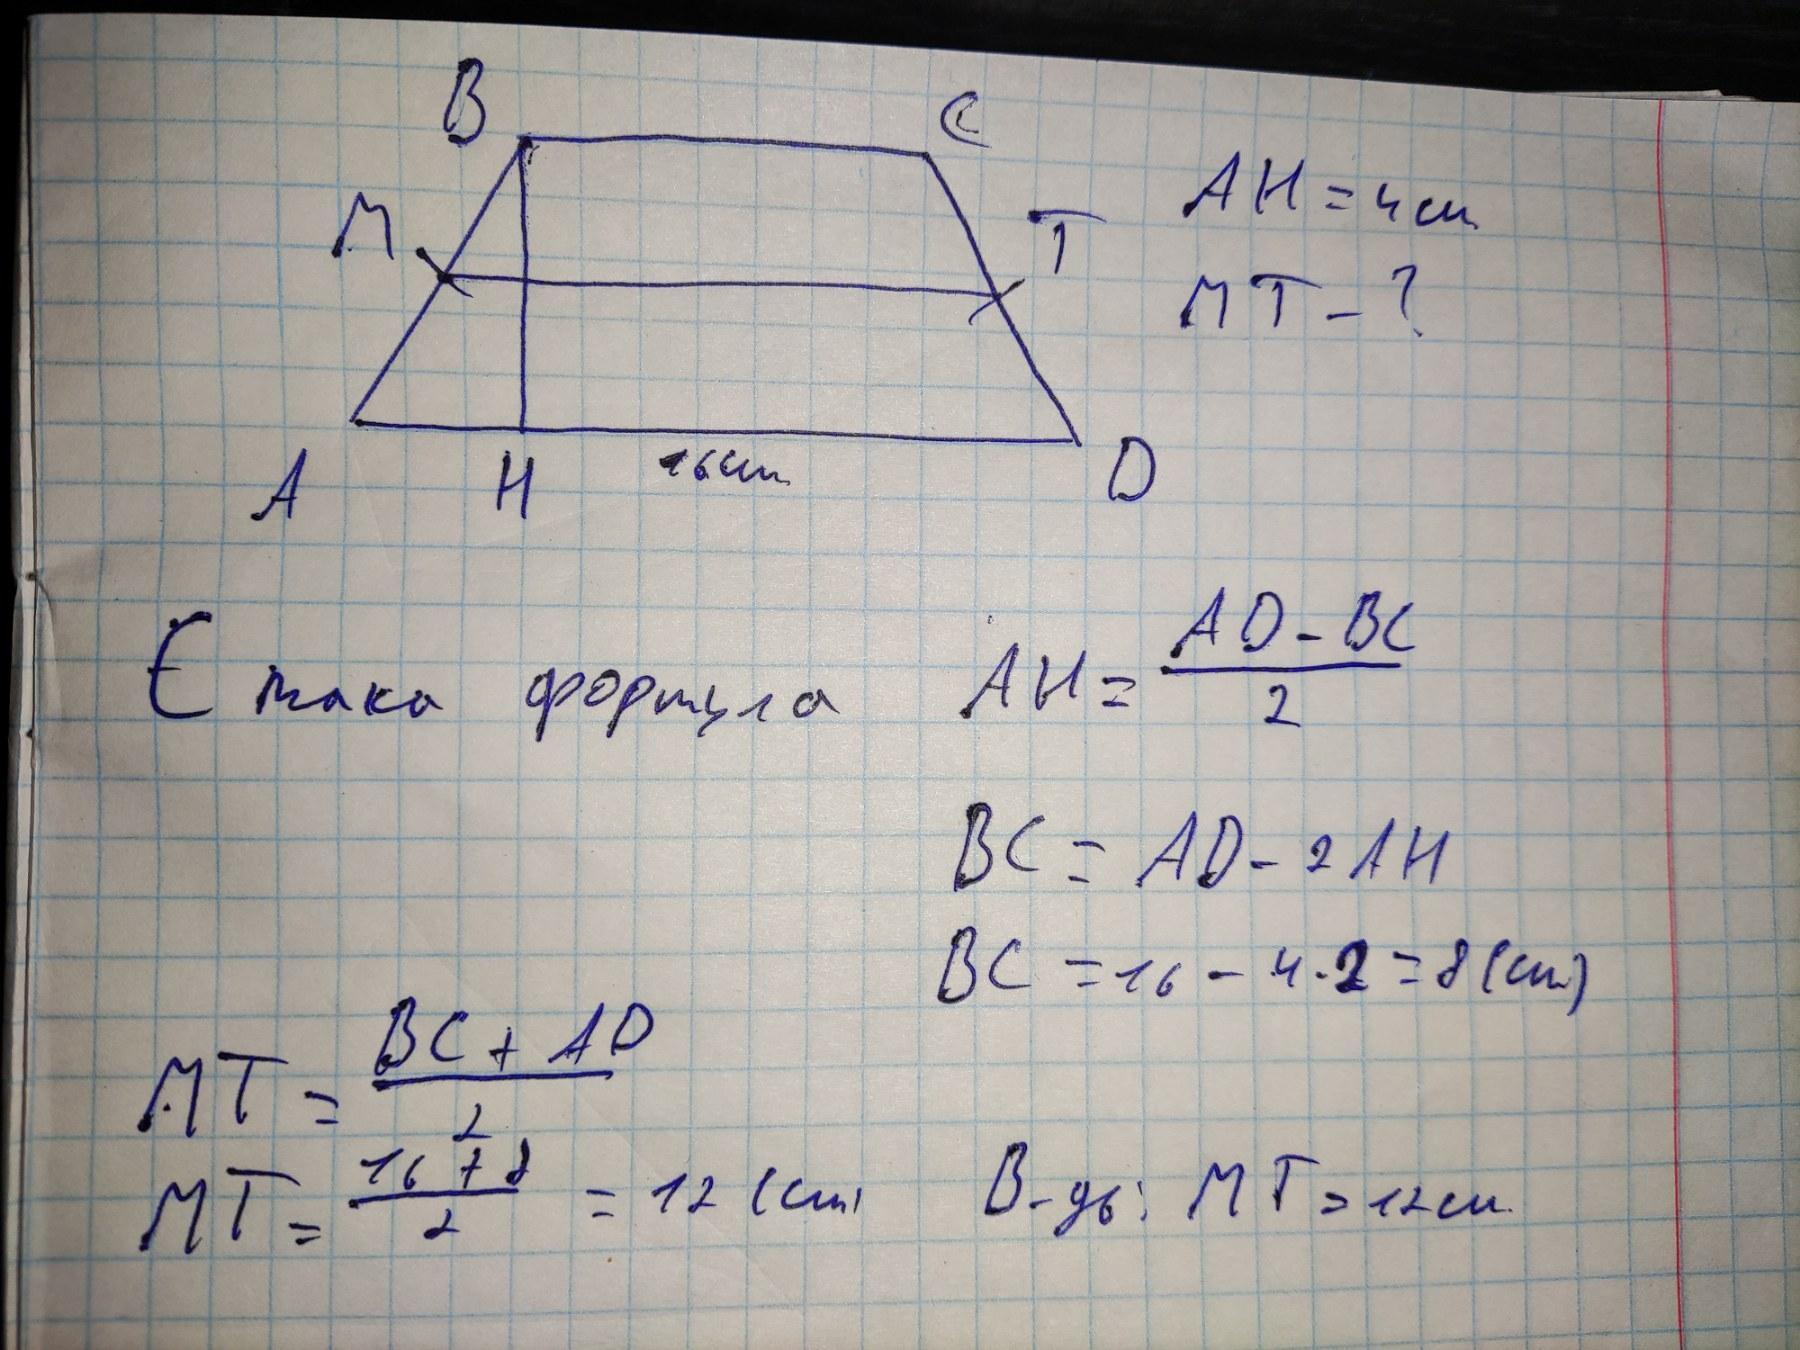 B C
M T AH = 4 см
MT - ?
A H 16 см D
Є така формула AH = AD - BC / 2
BC = AD - 2AH
BC = 16 - 4 · 2 = 8 (см)
MT = BC + AD / 2
MT = 16 + 8 / 2 = 12 (см) В-дь: MT = 12 см